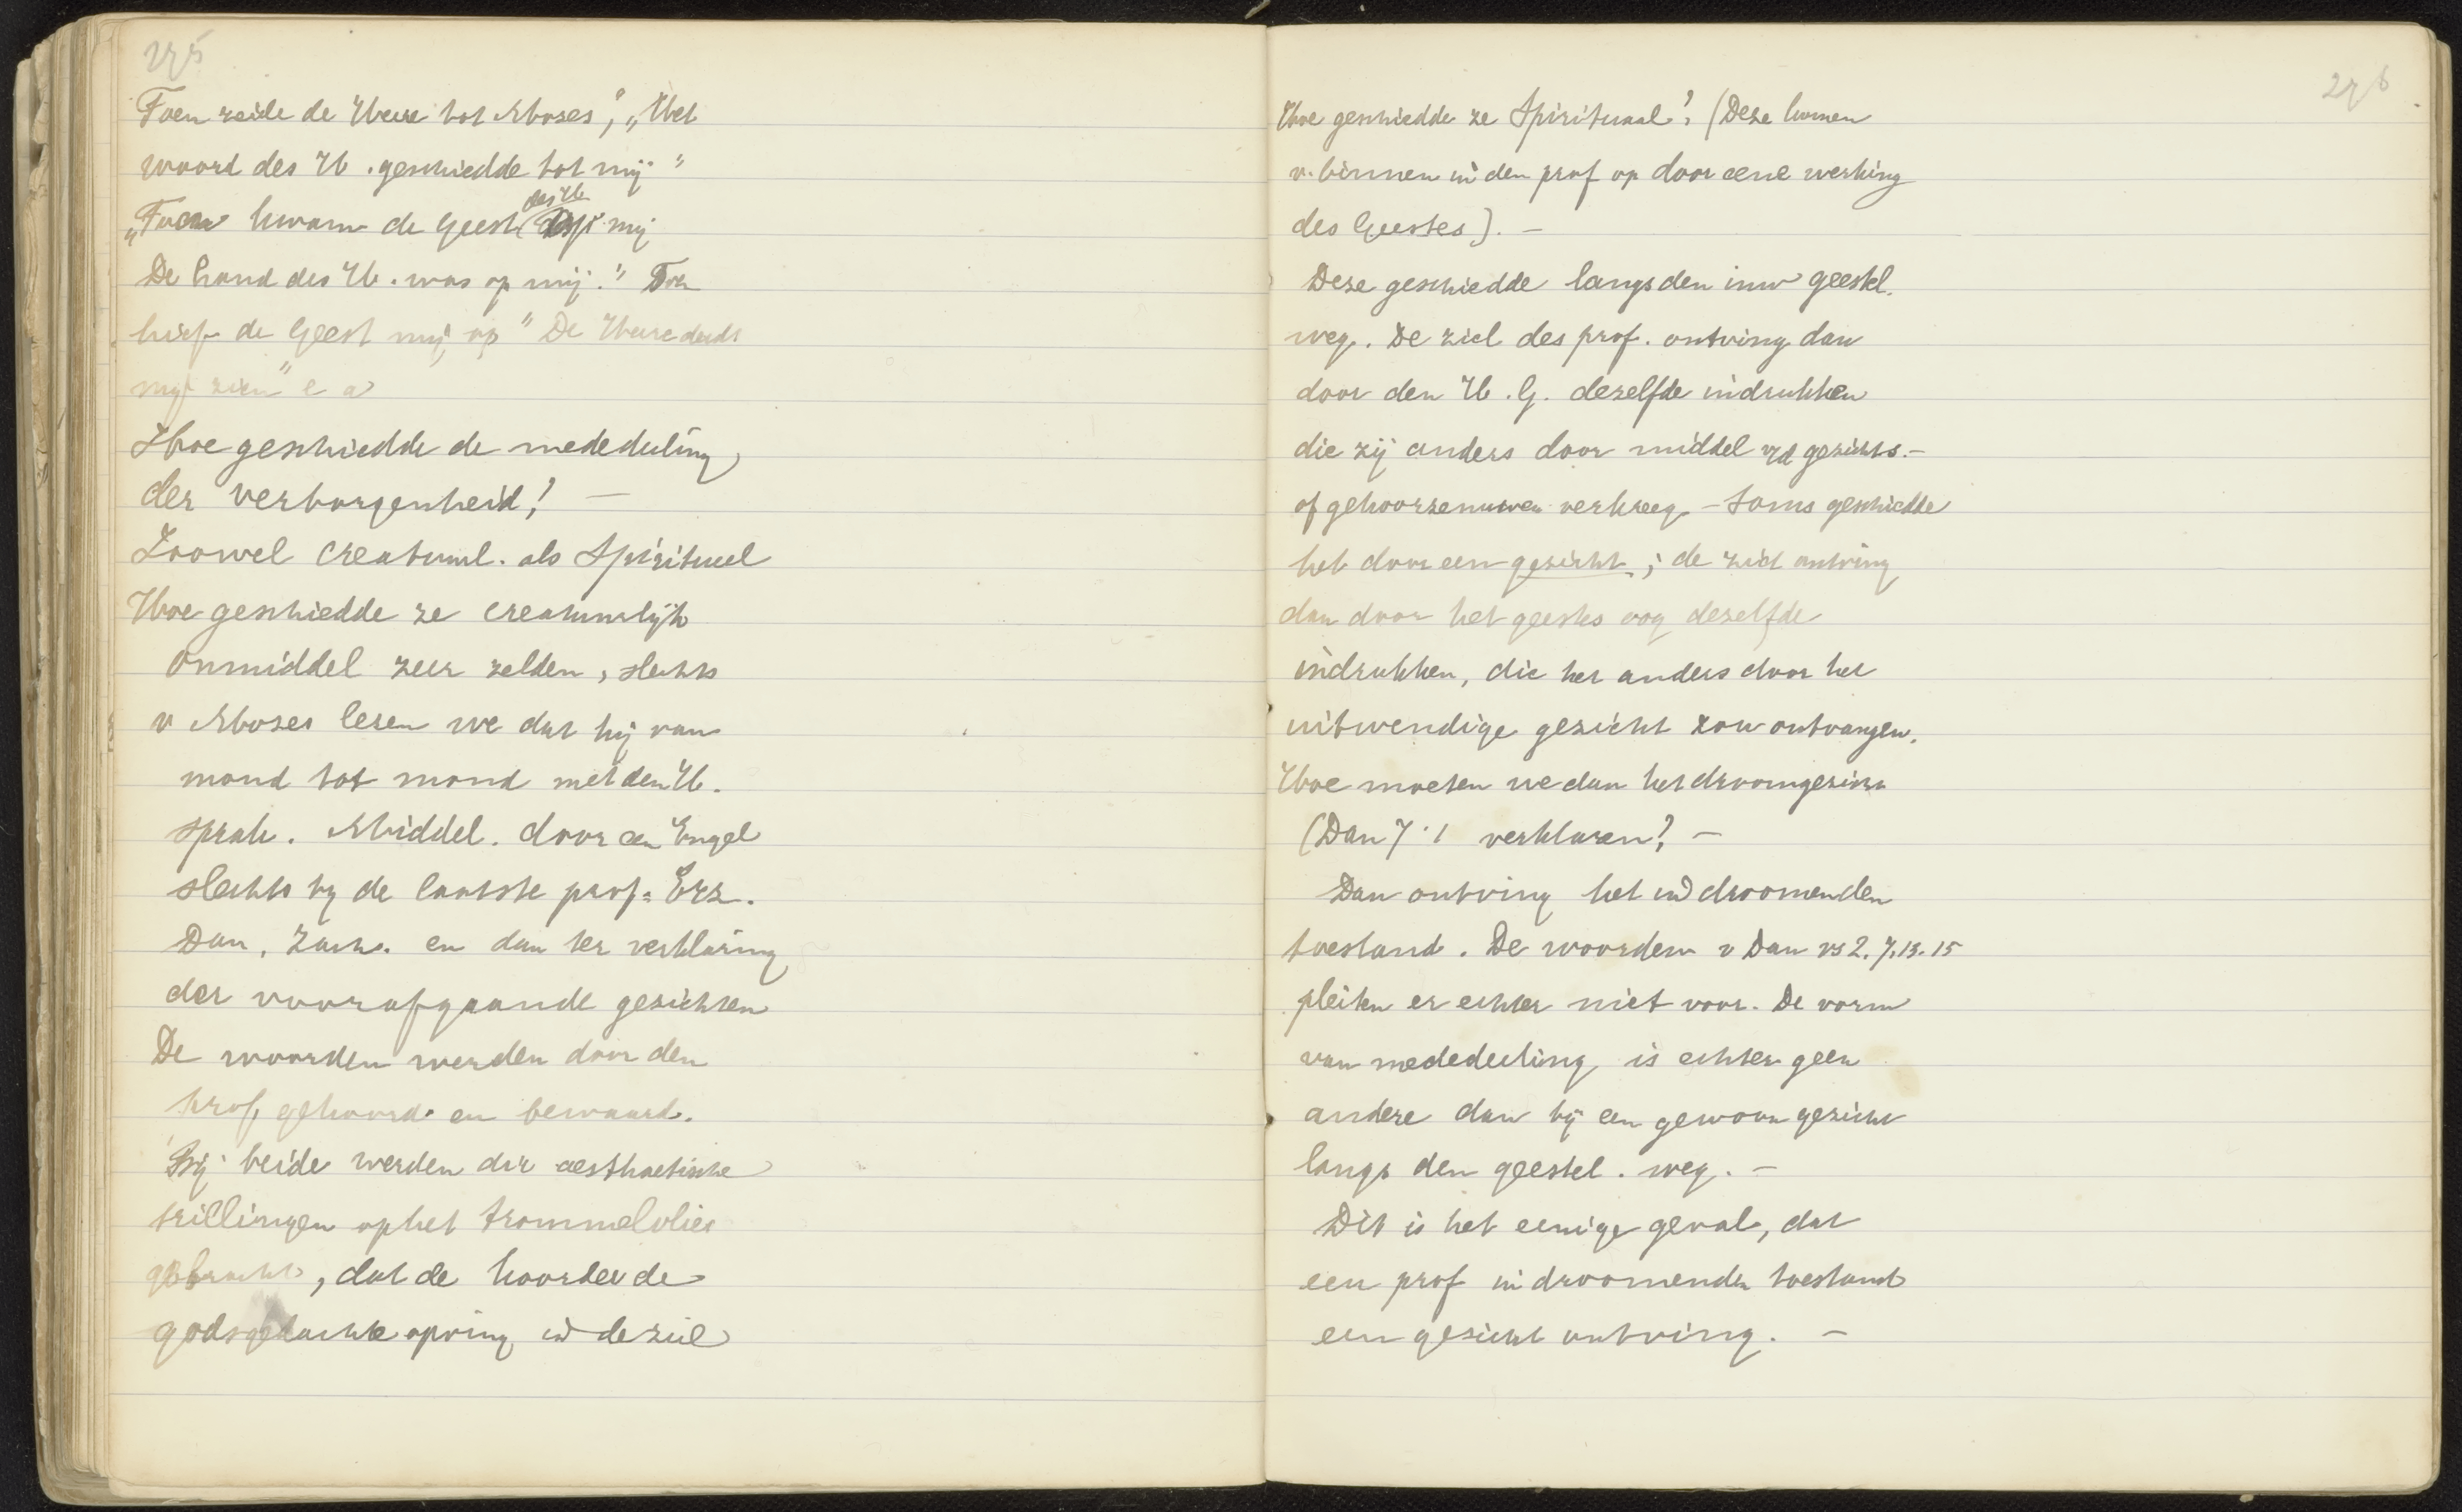 275
Toen zeide de Heere tot Mozes", "Het
woord des H. geschiedde tot mij"
des H.
"Toen kwam de Geest op mij
De hand des H. was op mij." Toen
hief de Geest mij op" De Heere deed
mij zien" e a
Hoe geschiedde de mededeeling
der verborgenheid? —
Zoowel creatuurl. als Spiritueel
Hoe geschiedde ze creatuurlijk
Onmiddel zeer zelden, slechts
v Mozes lezen we dat hij van
mond tot mond met den H.
sprak. Middel. door een Engel
slechts bij de laatste prof: Ezz.
Dan, Zach. en dan ter verklaring
der voorafgaande gezichten
De woorden werden door den
prof gehoord en bewaard.
Bij beide werden der aesthaetische
trillingen op het trommelvlies
gebracht, dat de hoorde de
godsgedachte opving in de ziel
276
Hoe geschiedde ze Spirituaal? (Deze komen
v. binnen in den prof op door eene werking
des Geestes). —
Deze geschiedde langs den inw geestel.
weg. De ziel des prof. ontving dan
door den H. G. dezelfde indrukken
die zij anders door middel v/d gezichts.-
of gehoorzenuwen verkreeg — Soms geschiedde
het door een gezicht; de ziel ontving
dan door het geestes oog dezelfde
indrukken, die het anders door het
uitwendige gezicht zou ontvangen.
Hoe moeten we dan het droomgezicht
(Dan 7:1 verklaren? —
Dan ontving het in droomenden
toestand. De woorden v Dan vs 2. 7. 13. 15
pleiten er echter niet voor. De vorm
van mededeeling is echter geen
andere dan bij een gewoon gezicht
langs den geestel. weg. —
Dit is het eenige geval, dat
een prof in droomenden toestand
een gezicht ontving. —